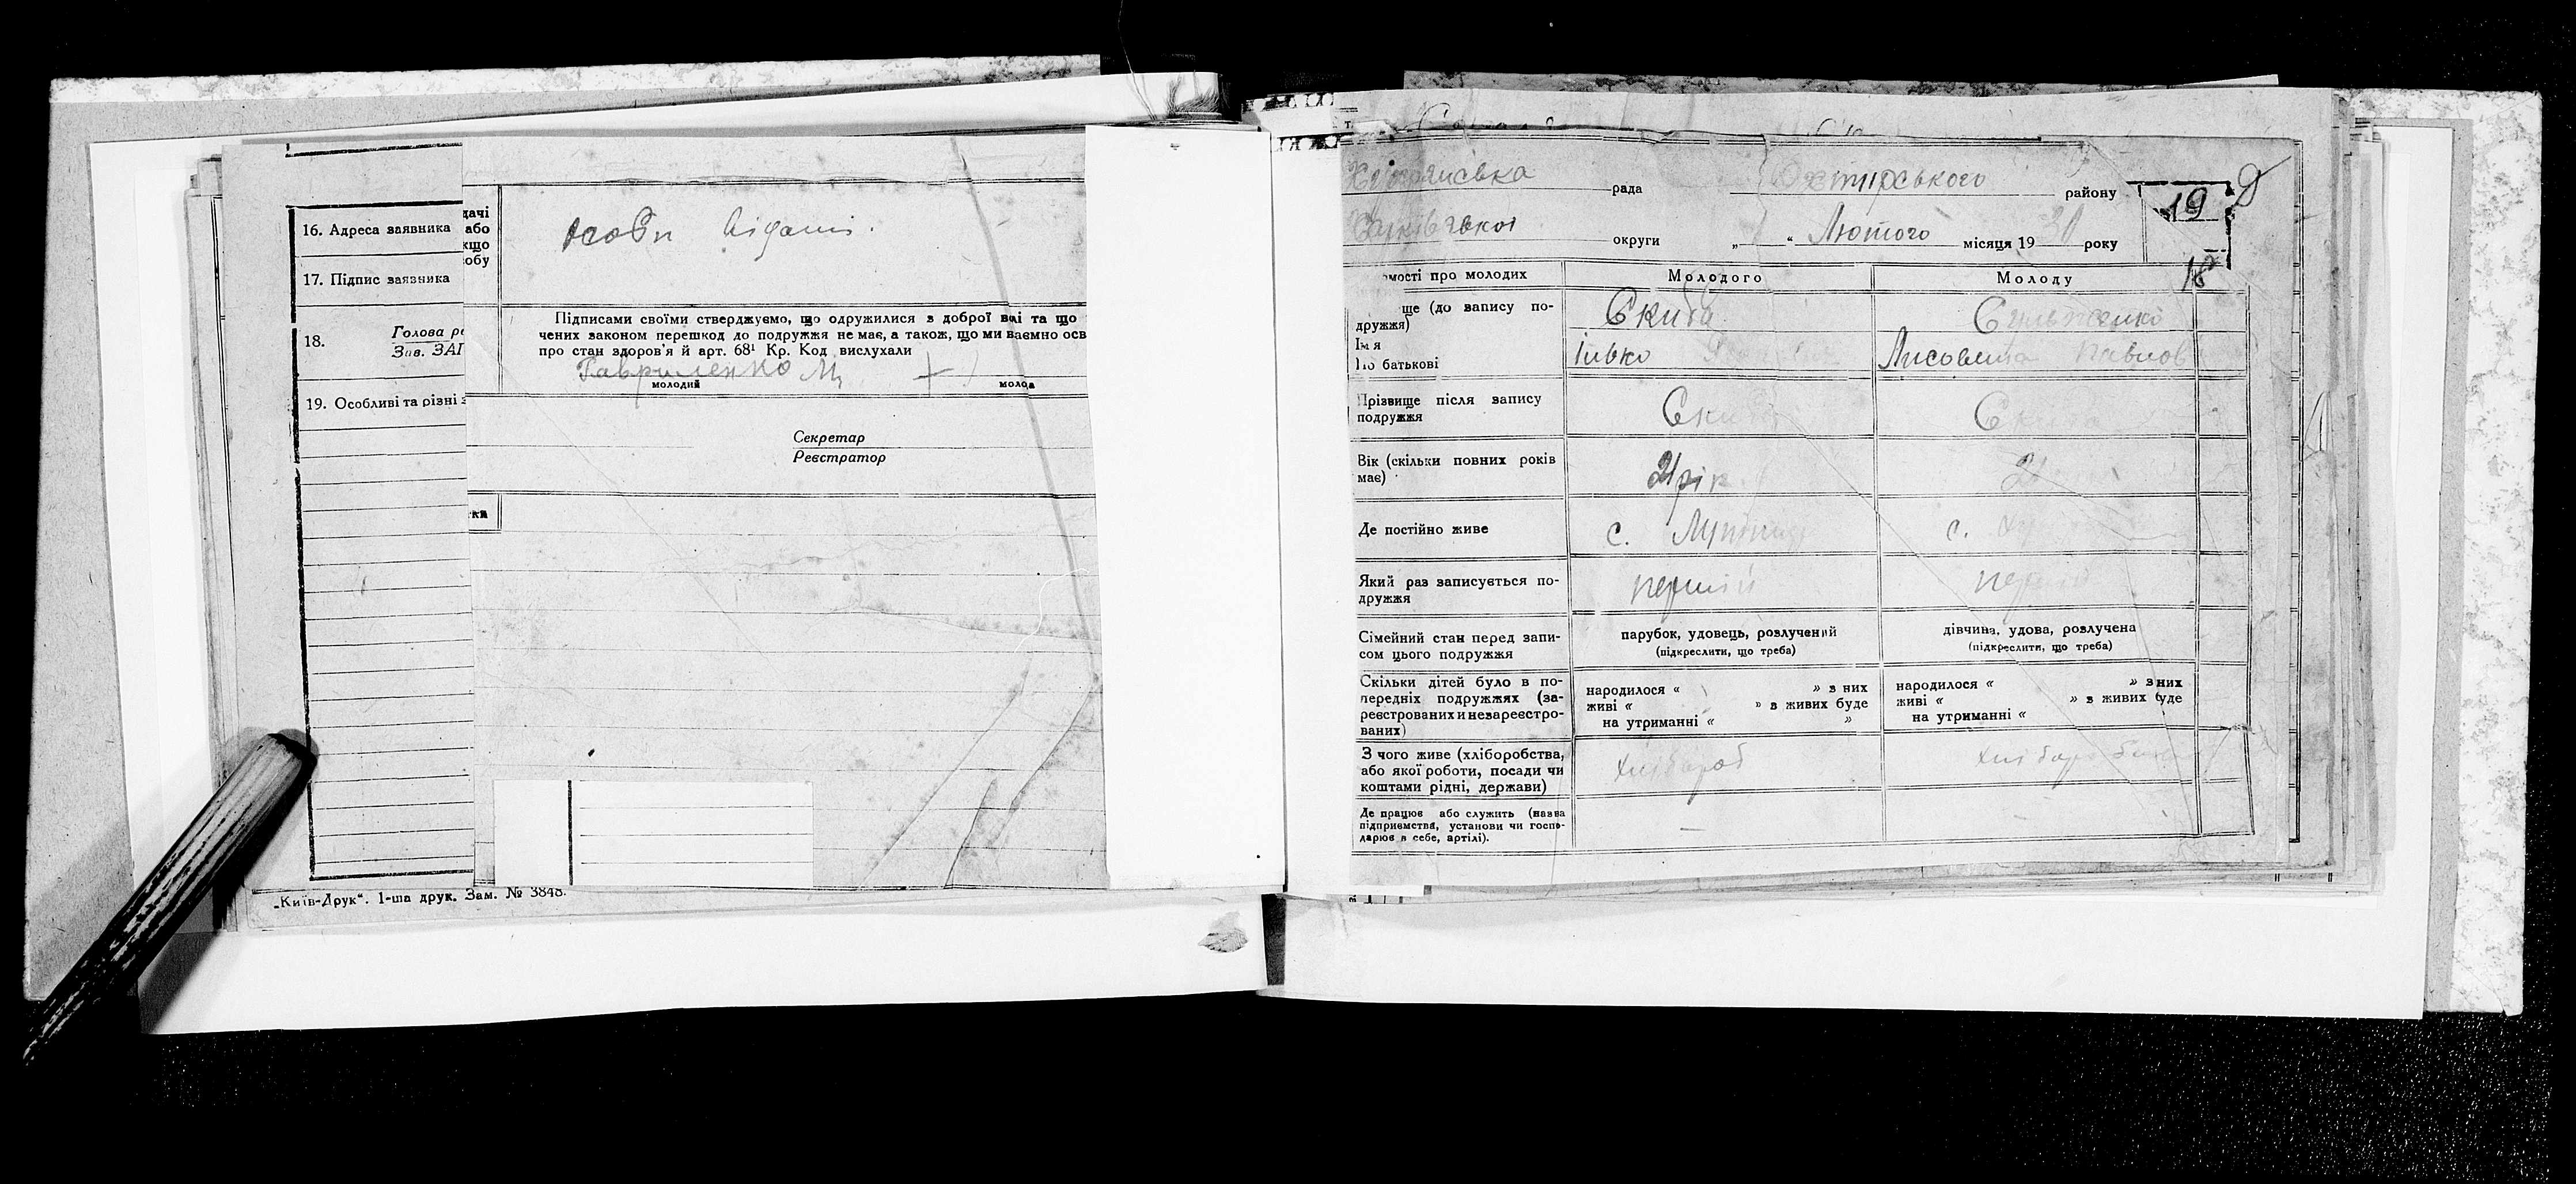 16. Адреса заявника
17. Підпис заявника
18.
Голова
Зав.
19. Особливі та різні
„Київ-Друк“. 1-ша друк. Зам. № 3848.
або
особи відомі.
Підписами своїми стверджуємо, що одружилися з доброї волі та що
чених законом перешкод до подружжя не має, а також, що ми взаємно осв
про стан здоров'я й арт. 68¹ Кр. Код вислухали
Гавриленко
молодий
+
Секретар
Реєстратор
рада
Охтирського району
19
округи „ “ Лютого місяця 19 30 року
18
мості про молодих
Молодого
Молоду
ще (до запису по-
дружжя)
Скиба
Ім я
По батькові
Івко
Лисовета Павлов
Прізвище після запису
подружжя
Скиба
Скиба
Вік (скільки повних років
має)
21 рік
21
Де постійно живе
с.
с.
Який раз записується по-
дружжя
перший
перший
Сімейний стан перед запи-
сом цього подружжя
парубок, удовець, розлучений
(підкреслити, що треба)
дівчина, удова, розлучена
(підкреслити, що треба)
Скільки дітей було в по-
передніх подружжях (за-
реєстрованих и незареєстро-
ваних)
народилося “ ” з них
живі “ ” з живих буде
на утриманні “ ”
народилося “ ” з них
живі “ ” з живих буде
на утриманні “
З чого живе (хліборобства,
або якої роботи, посади чи
коштами рідні, держави)
хлібороб
Де працює або служить (назва
підприємства, установи чи госпо-
дарює в себе, артілі).
–
–